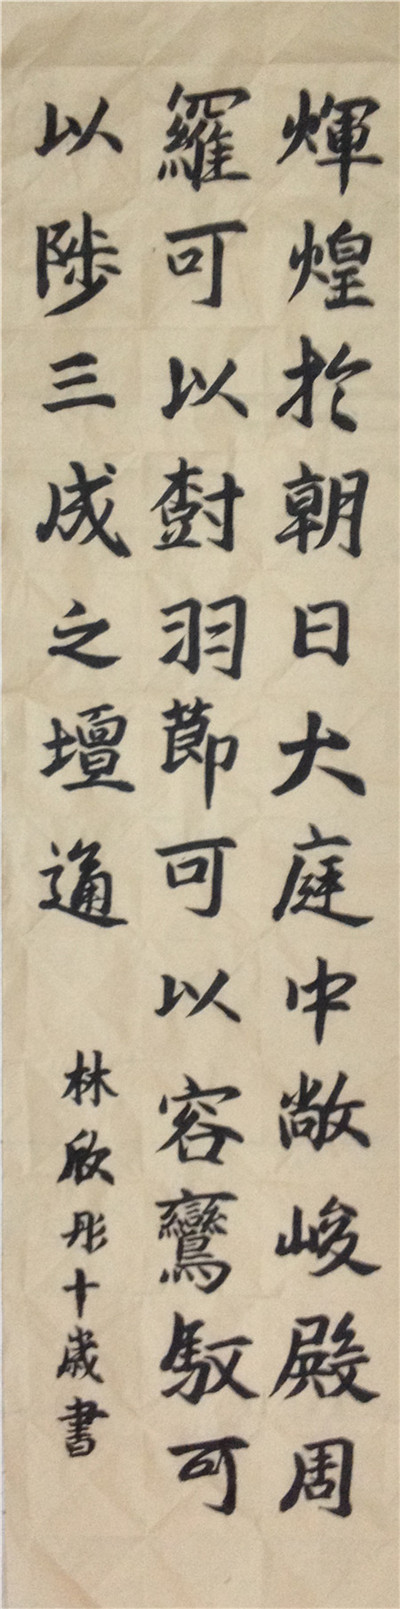 煇煌於朝日大庭中敞峻殿周
羅可以𣗳羽節可以容鸞馭可
以陟三成之壇通
林欣彤十歲書